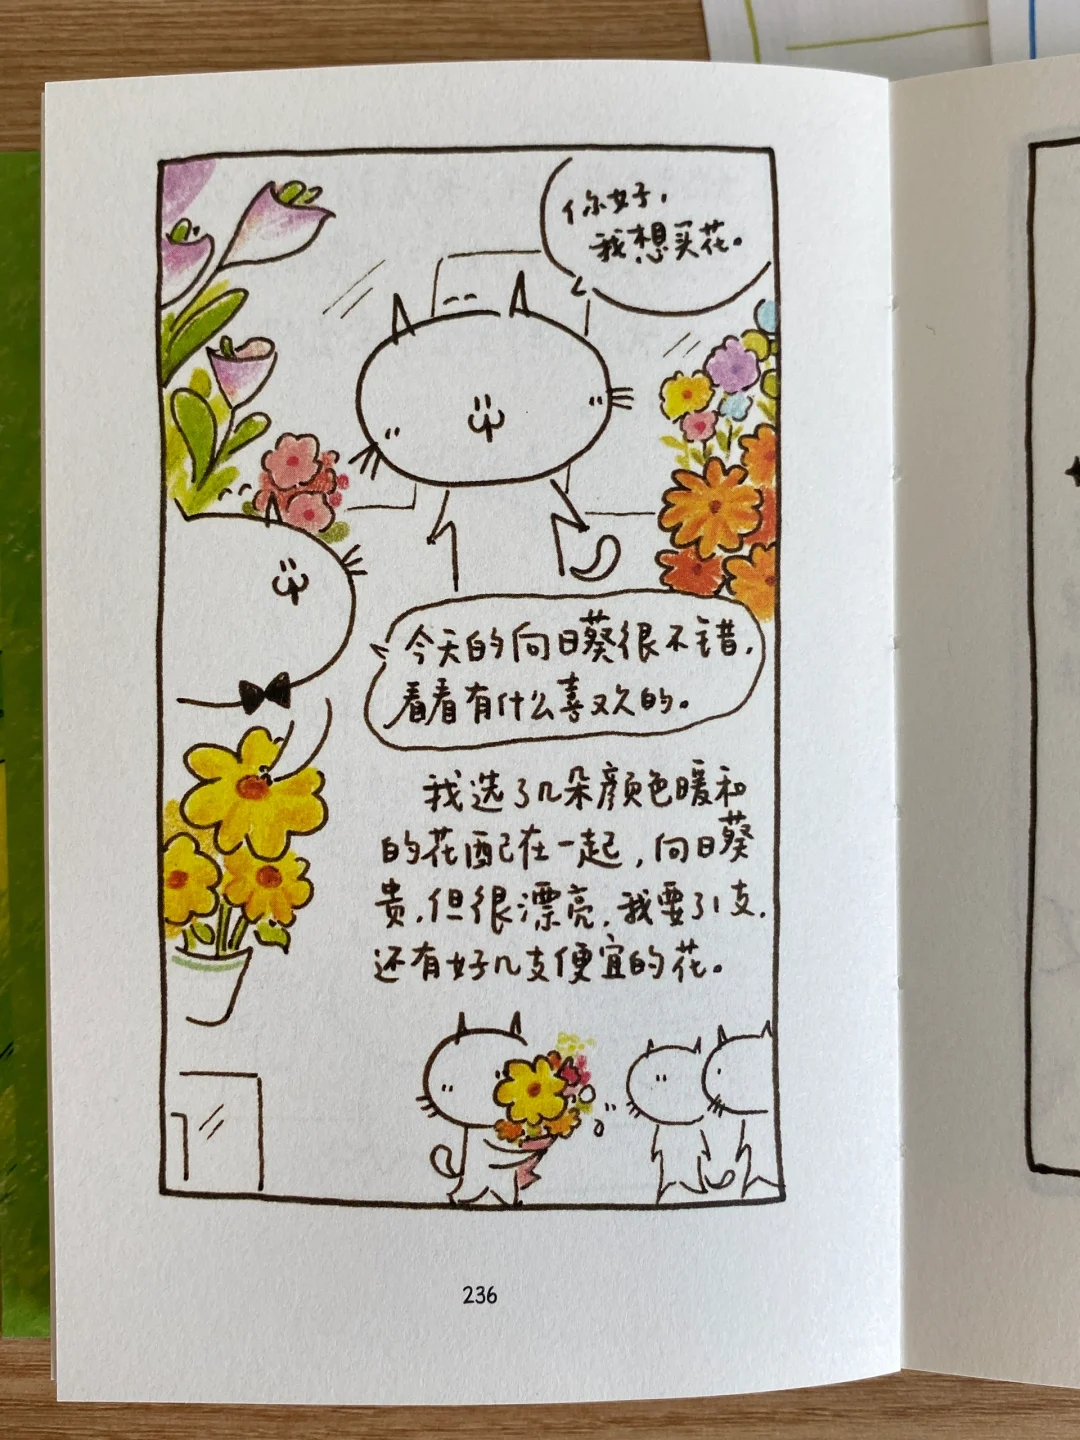 你好，
我想买花。
今天的向日葵很不错，
看看有什么喜欢的。
我选了几朵颜色暖和
的花配在一起，向日葵
贵，但很漂亮，我要了1支，
还有好几支便宜的花。
236